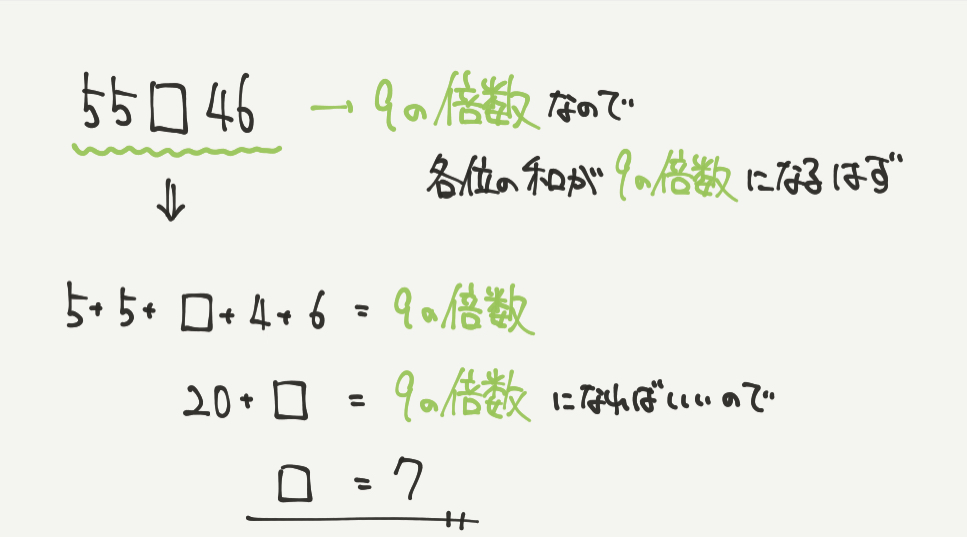 55□46 → 9の倍数なので
各位の和が9の倍数になるはず
↓
5+5+□+4+6=9の倍数
20+□=9の倍数になればいいので
□=7